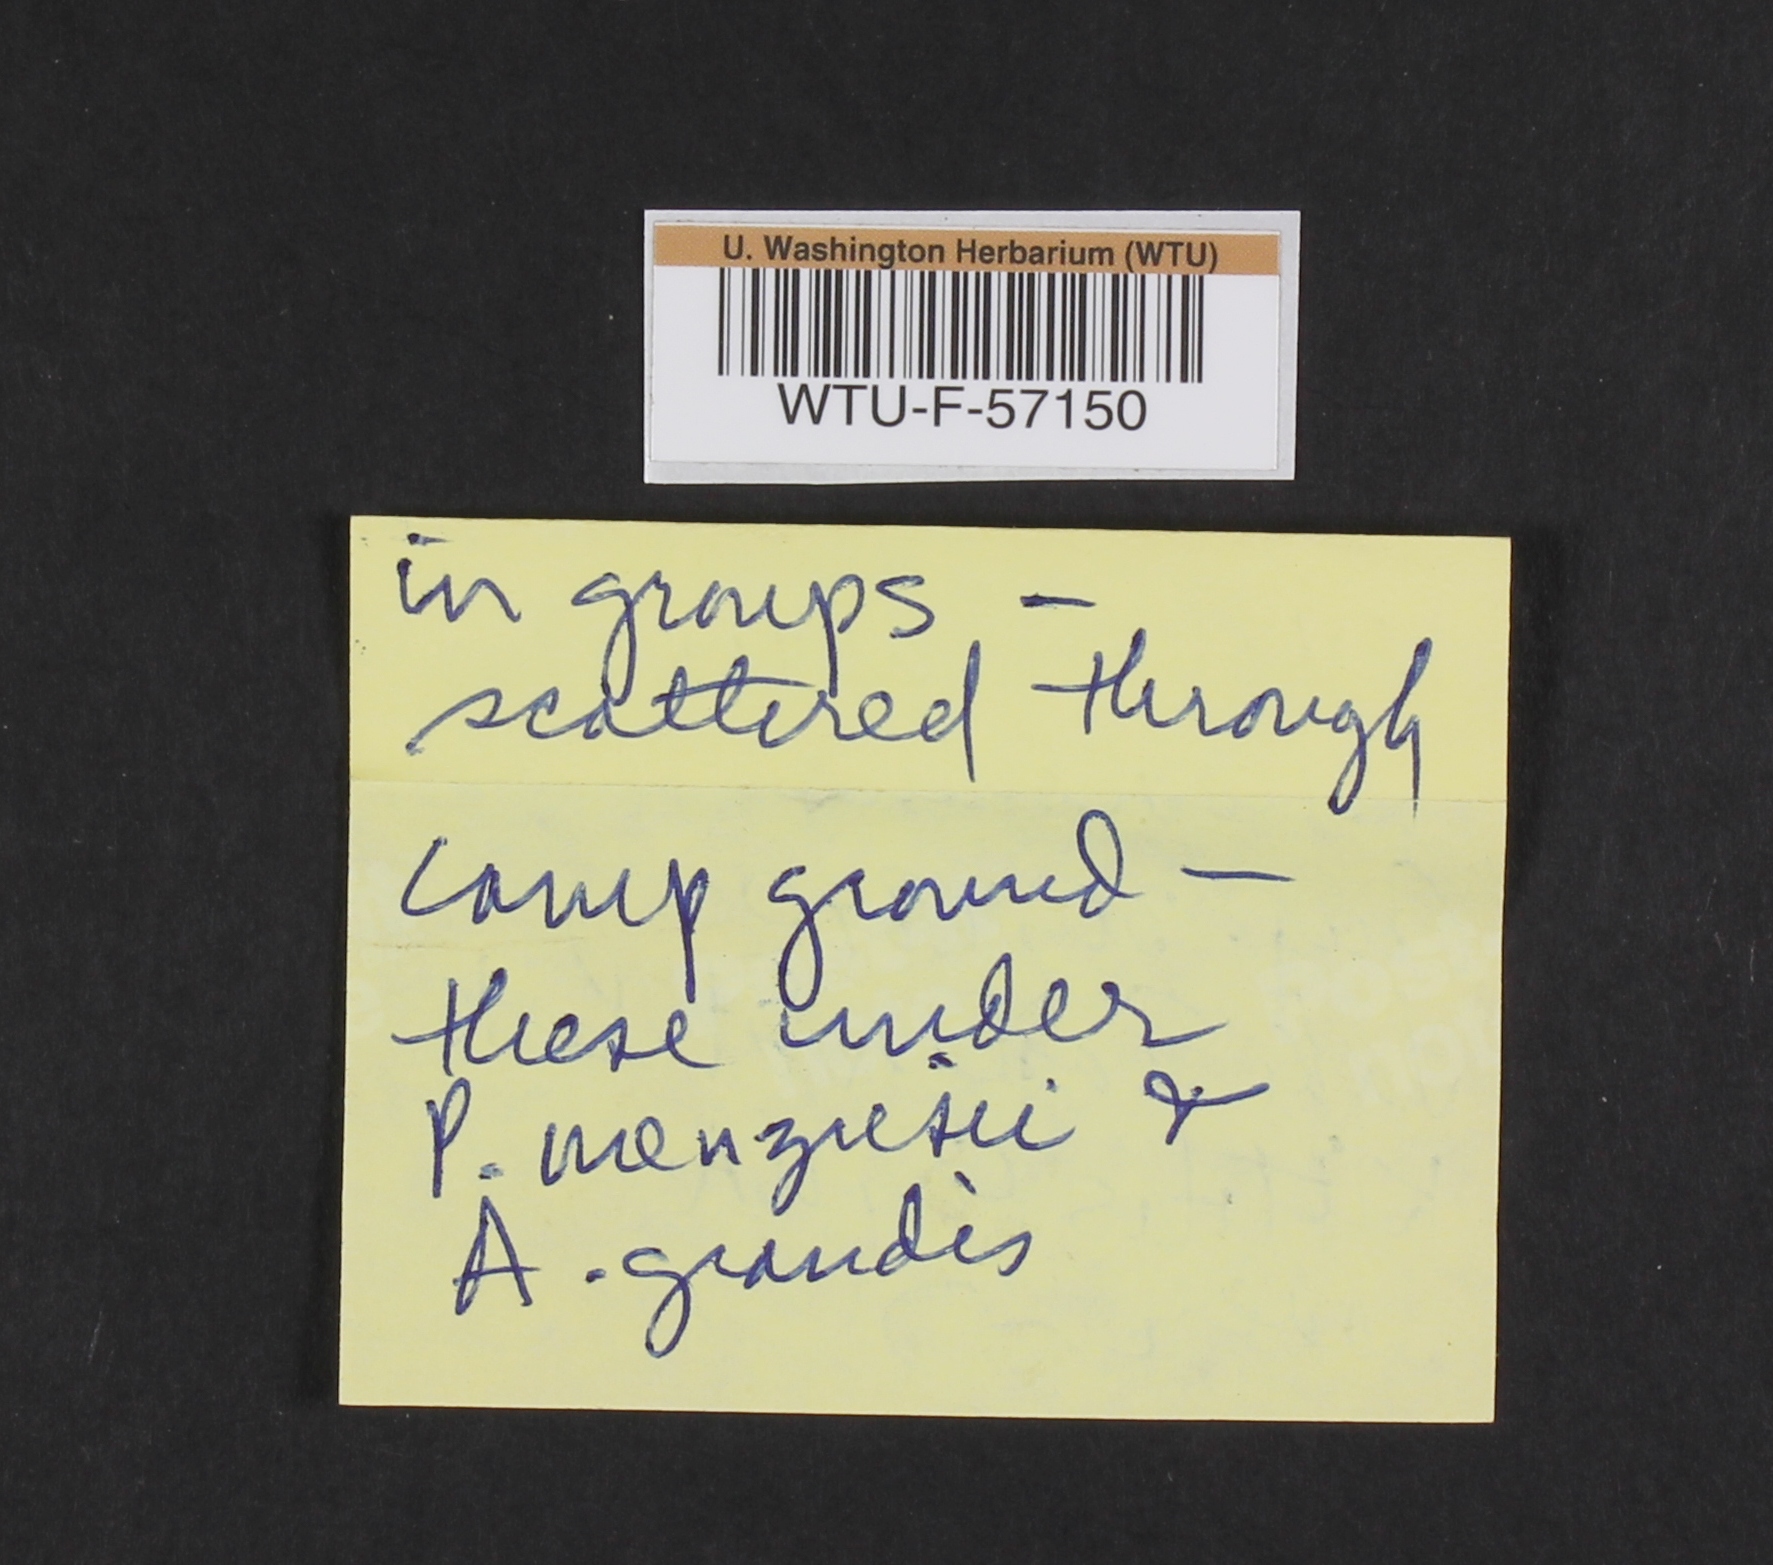 U. Washington Herbarium (WTU)
WTU-F-57150
in groups -
scattered through
camp ground -
these under
P. menziesii &
A. grandis